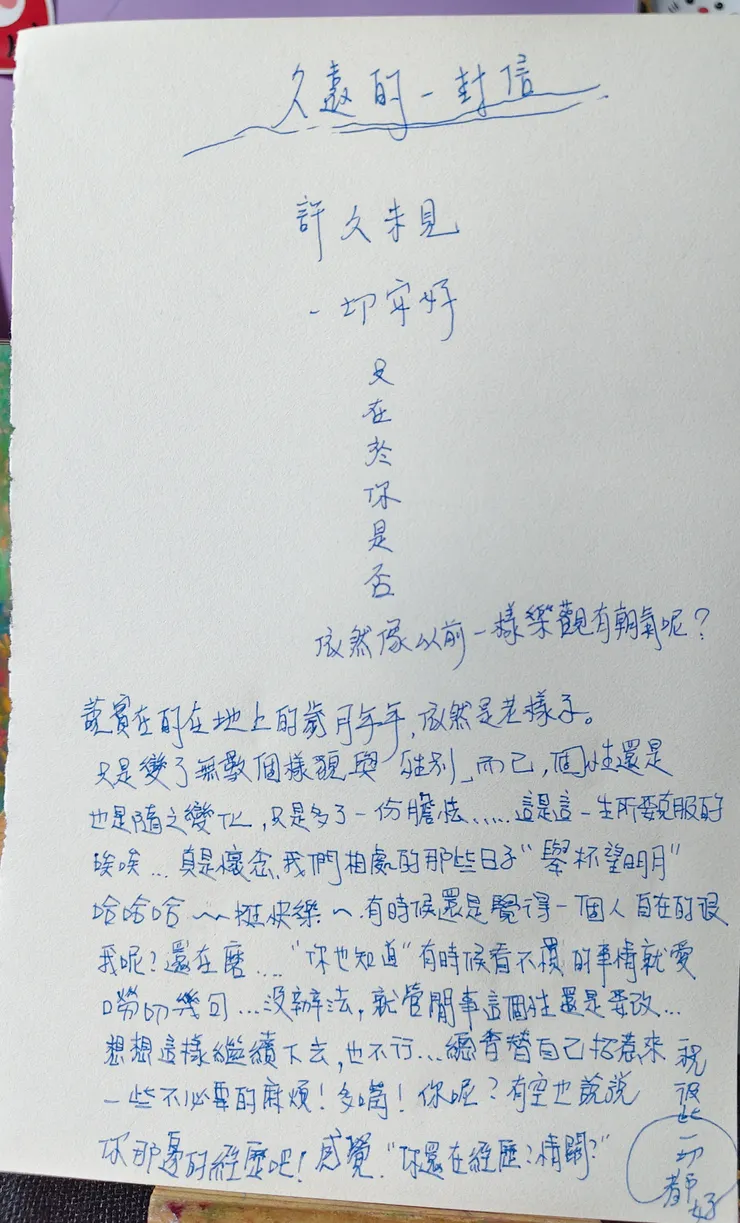 久遠的一封信
許久未見
一切安好
只在於你是否
依然像以前一樣樂觀有朝氣呢？
說實在的在地上的歲月年年，依然是老樣子。
只是變了無數個樣貌與「性別」而已，個性還是
也是隨之變化，只是多了一份膽怯……這是這一生所要克服的
唉唉…真是懷念，我們相處的那些日子"舉杯望明月"
哈哈哈~~挺快樂~有時候還是覺得一個人自在的很
我呢？還在磨…."你也知道"有時候看不慣的事情就愛
嘮叨幾句…沒辦法，就管閒事這個性還是要改…
想想這樣繼續下去，也不行…總會替自己招惹來
一些不必要的麻煩！多嘴！你呢？有空也說說
你那邊的經歷吧！感覺."你還在經歷？情關？"
祝彼此一切都好